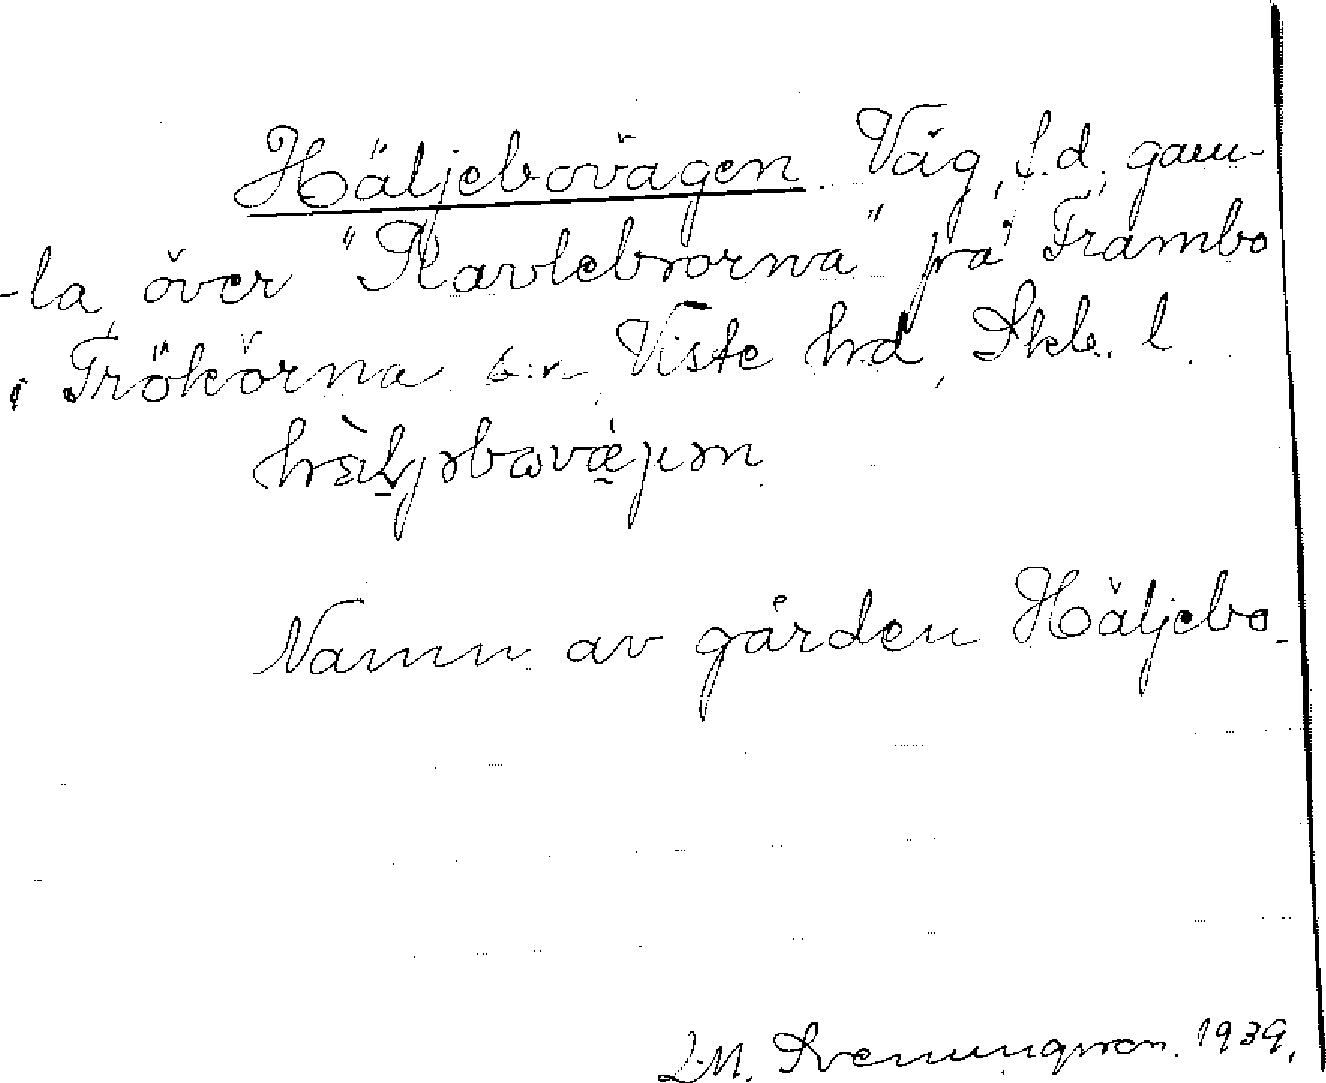 Häljebovägen. Väg, f.d. gam-
-la över "Kavlebrorna" på Frambo
i Trökörna s:n Viste hd, Skb. l.
hæ̀ljəbovǽgən.
Namn av gården Häljebo.
L.M. Svenungsson. 1939.